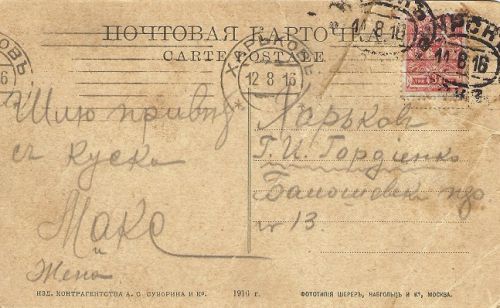 ПОЧТОВАЯ КАРТОЧКА
CARTE POSTALE
ХАРЬКОВЪ
12 8 16
11 8 16
11 8 16
Шлю привет
съ Курска
Макс
и
Женя
Харьков
Г. И. Гордіенко
№ 13.
ИЗД. КОНТРАГЕНТСТВА А. С. СУВОРИНА и Кº.
1916 г.
ФОТОТИПІЯ ШЕРЕРЪ, НАБГОЛЬЦЪ и Кº, МОСКВА.